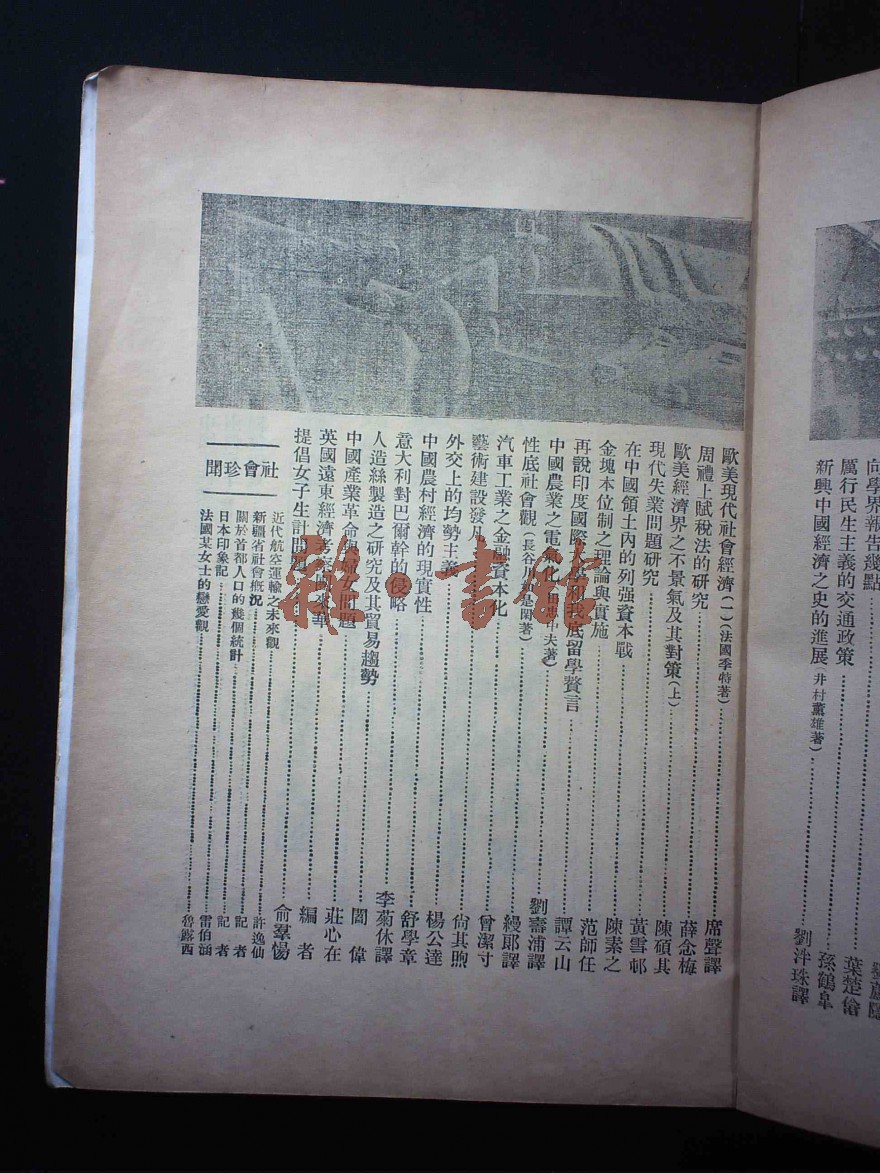 劉蘆隱
向學界報告幾點 葉楚傖
厲行民生主義的交通政策 孫鶴皐
新興中國經濟之史的進展(井村薰雄著) 劉泮珠譯
歐美現代社會經濟(一)(法國季特著) 席聲譯
周禮上賦稅法的研究 薛念梅
歐美經濟界之不景氣及其對策(上) 陳碩其
現代失業問題研究 黃雪邨
在中國領土內的列强資本戰 陳素之
金塊本位制之理論與實施 范師任
再說印度國際大學和我底留學贅言 譚云山
中國農業之電氣化 中夫著) 劉壽浦譯
性底社會觀(長谷川是閑著) 綬郎譯
汽車工業之金融資本化 曾潔寸
藝術建設發凡 尙其煦
外交上的均勢主義 楊公達
中國農村經濟的現實性 舒學章
意大利對巴爾幹的侵略 李菊休譯
人造絲製造之研究及其貿易趨勢 閻偉
中國產業革命與婦女問題 莊心在
英國遠東經濟考察團來華 編者
提倡女子生計問題 俞羣惕
社會珍聞
近代航空運輸之未來觀 許逸仙
新疆省社會概况 記者
關於首都人口的幾個統計 記者
日本印象記 雷伯涵
法國某女士的戀愛觀 魯露西
雜·書館